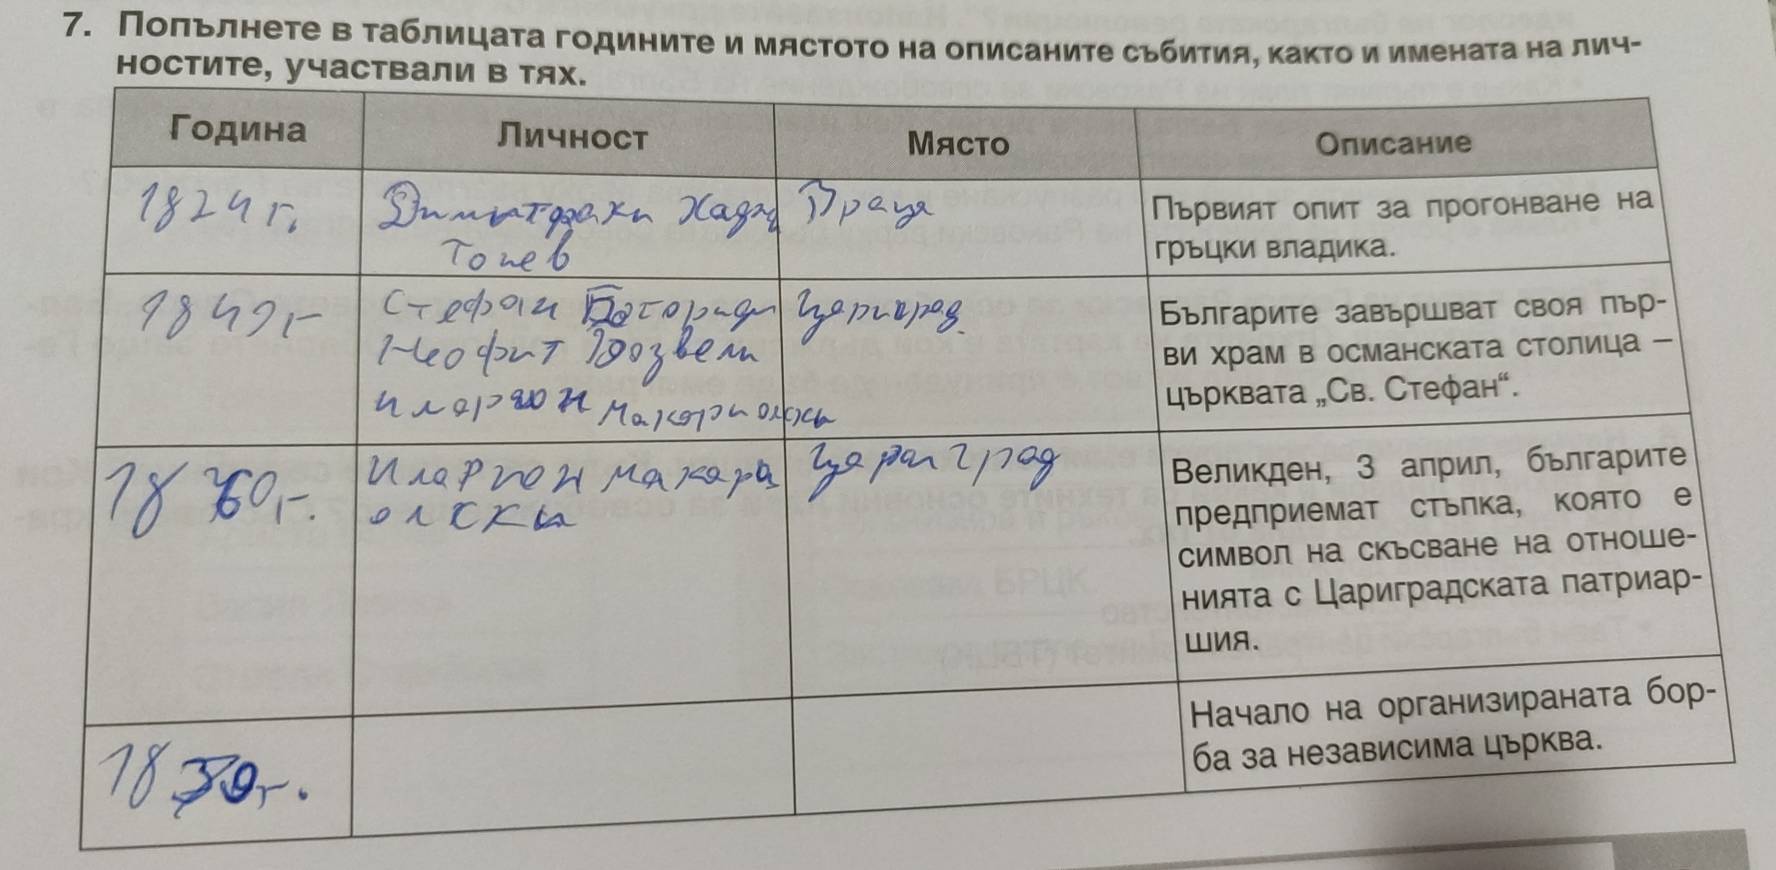 7. Попълнете в таблицата годините и мястото на описаните събития, както и имената на лич-
ностите, участвали в тях.
Година Личност Място Описание
1824 г. Димитраки Хаджи Враца
Тошев
Първият опит за прогонване на
гръцки владика.
1849 г. Стефан Богориди Цариград
Неофит Бозвели
иларион Макариополски
Българите завършват своя пър-
ви храм в османската столица –
църквата „Св. Стефан“.
1860г. Иларион макарио Цариград
олски
Великден, 3 април, българите
предприемат стъпка, която е
символ на скъсване на отноше-
нията с Цариградската патриар-
шия.
1839г.
Начало на организираната бор-
ба за независима църква.